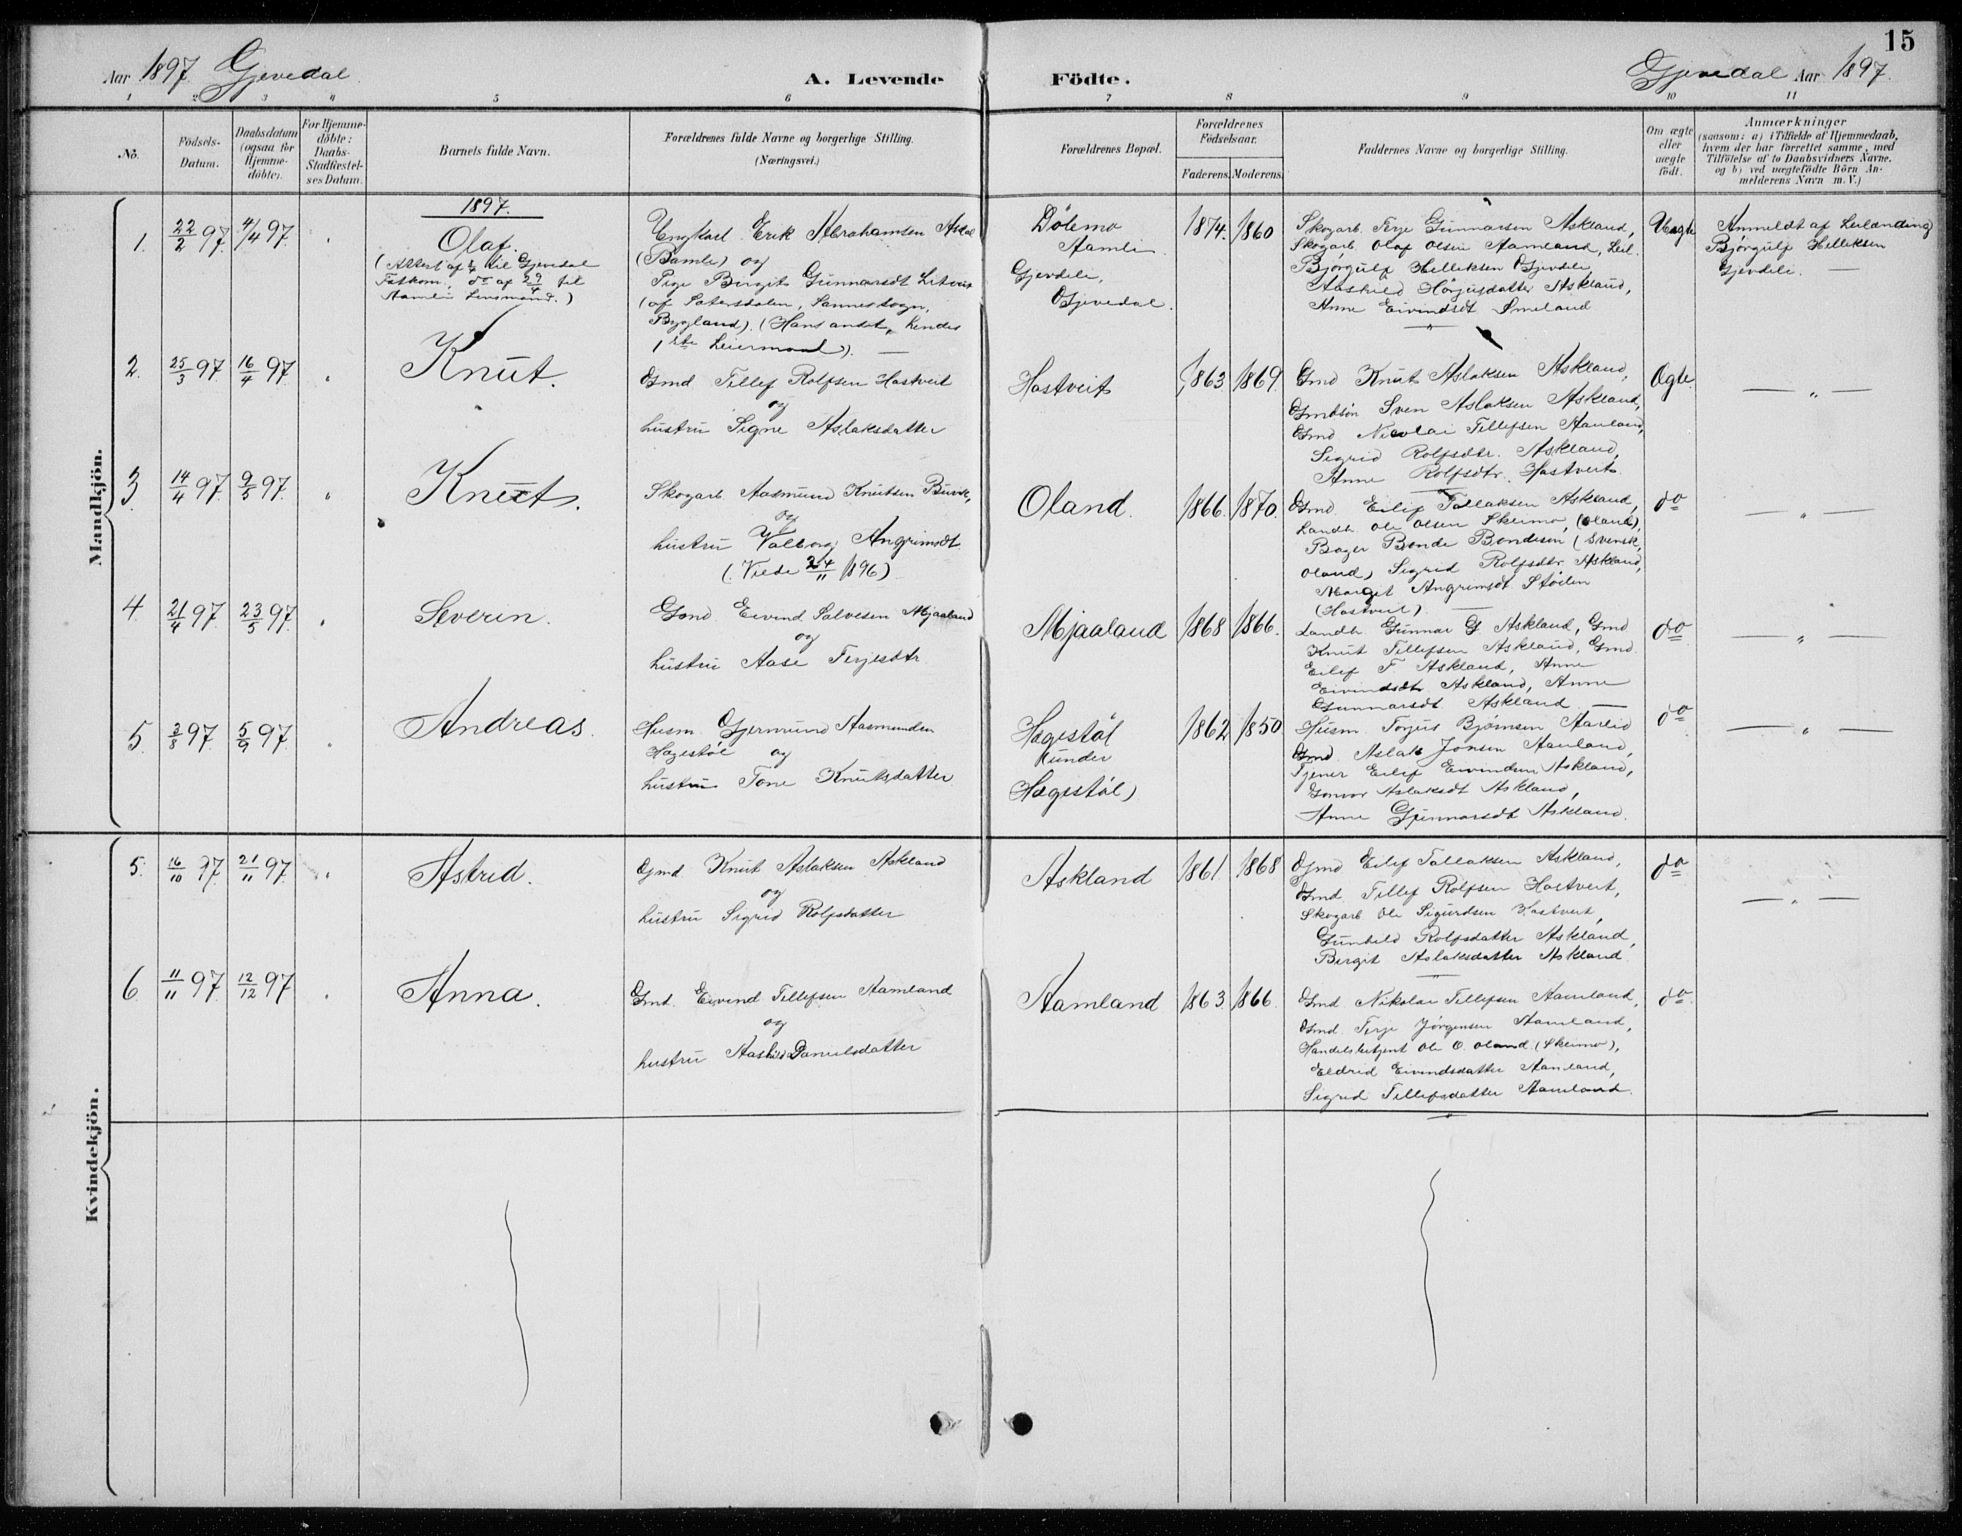 15
Aar 1897 Gjevedal
A. Levende Födte.
Gjevedal Aar 1897.
1 2 3 4 5 6 7 8 9 10 11
No.
Födsels-Datum.
Daabsdatum (ogsaa for Hjemme-döbte).
For Hjemme-döbte: Daabs-Stadfæstel-ses Datum.
Barnets fulde Navn.
Forældrenes fulde Navne og borgerlige Stilling.
(Næringsvei.)
Forældrenes Bopæl.
Forældrenes Födselsaar.
Faderens. Moderens.
Faddernes Navne og borgerlige Stilling.
Om ægte eller uægte født.
Anmærkninger
(saasom: a) i Tilfælde af Hjemmedaab,
hvem der har forrettet samme, med
Tilföielse af to Daabsvidners Navne.
og b) ved uægtefödte Börn An-
melderens Navn m. V.)
Mandkjön.
1897.
1. 22/2 97. 4/4 97 "
Olaf.
(Attest af 4/4 til Gjevedal
Fatkom., do af 29/4 til
Aamli Lensmand.)
Ungkarl Erik Abrahamsen
(Bamle) og
Pige Birgit Gunnarsdt
(af Sætersdalen, Sannes sogn,
Bygland). (Hans andet, hendes
1ste Leiermaal). —
Dölemo
Aamli
Gjevdeli,
Gjevedal.
1874. 1860
Skogarb. Terje Gunnarsen Askland,
Skogarb Olaf Olsen Aamland, Leil.
Bjørgulf Helliksen Gjevdeli,
Aashild Askland,
Anne Eivindsdt Smeland
Uægte
Anmeldt af Leilænding
Bjørgulf Helliksen
Gjevdeli. —
2. 25/3 97 16/4 97. "
Knut.
Gmd Tellef Rolfsen Hastveit
og
hustru Signe Aslaksdatter
Hastveit
1863 1869.
Gmd Knut Aslaksen Askland,
Gmdsøn Sven Aslaksen Askland,
Gmd Nicolai Tellefsen Aamland,
Sigrid Rolfsdtr. Askland,
Anne Rolfsdtr. Hastveit.
Ægte.
— " —
3 14/4 97 9/5 97. "
Knut.
Skogarb. Aasmund Knutsen
og
hustru Valborg Angrimsdt
(Viede 24/11 1896)
Oland.
1866. 1870.
Gmd Eilef Tallaksen Askland,
Landh. Ole Olsen Skeimo, (Oland),
Bager Bonde Bondesen (Svensk,
Oland) Sigrid Rolfsdtr. Askland,
Marget Angrimsdt Stöilen
(Hastveit). —
do
— " —
4. 21/4 97. 23/5 97. "
Severin.
Gmd Eivind Salvesen Mjaaland
og
hustru Aase Terjesdtr
Mjaaland
1868 1866.
Landh Gunnar G Askland, Gmd
Knut Tellefsen Askland, Gmd.
Eilef T Askland, Anne
Eivindsdtr. Askland, Anne
Gunnarsdt Askland. —
do
— " —
5. 3/8 97. 5/9 97. "
Andreas.
Husm. Gjermund Aasmundsen
Hægestøl og
hustru Tone Knutsdatter
Hægestøl
(under
Hægestøl)
1862 1850
Husm Torjus Bjørnsen Aarlid
Gmd. Aslak Jonsen Aamland,
Tjener Eilef Eivindsen Askland,
Gonvor Aslaksdt Askland,
Anne Gunnarsdt Askland.
do
— " —
Kvindekjön.
5. 16/10 97. 21/11 97. "
Astrid.
Gmd Knut Aslaksen Askland
og
hustru Sigrid Rolfsdatter
Askland
1861. 1868
Gmd Eilef Tallaksen Askland,
Gmd. Tellef Rolfsen Hastveit,
Skogarb Ole Sigurdsen Hastveit,
Gunhild Rolfsdatter Askland,
Birgit Aslaksdatter Askland
do
— " —
6. 11/11 97. 12/12 97 "
Anna.
Gmd. Eivind Tellefsen Aamland
og
hustru Aashild Danielsdatter
Aamland
1863. 1866.
Gmd Nikolai Tellefsen Aamland,
Gmd Terje Jørgensen Aamland,
Handelsbetjent Ole O. Oland (Skeimo),
Eldrid Eivindsdatter Aamland,
Sigrid Tellefsdatter Aamland.
do.